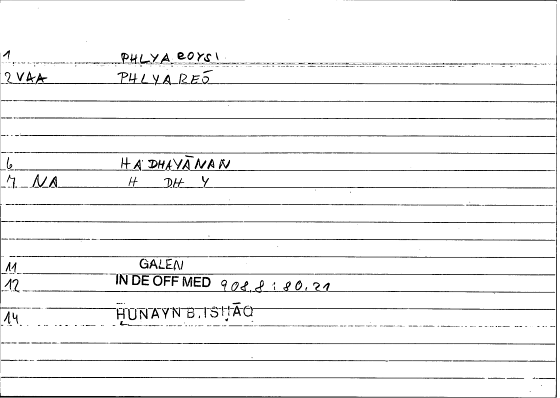 1 PHLYAROYSI
2 VAA PHLYAREŌ
6 HADHAYĀNAN
7 NA H DH Y
11 GALEN
12 IN DE OFF MED 908,8 : 80,21
14 ḤUNAYN B. ISḤĀQ